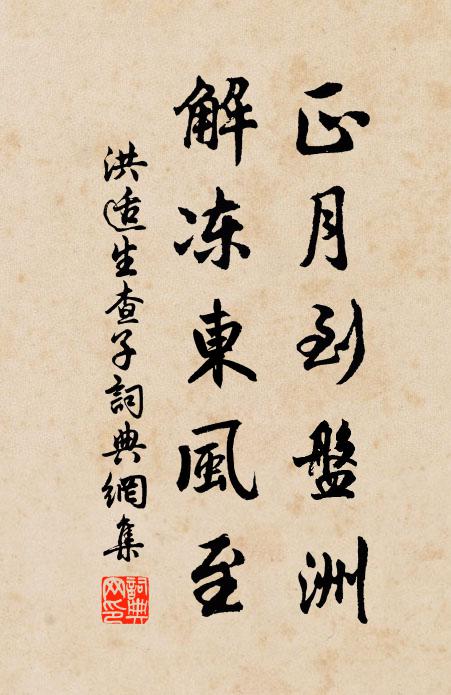 正月到盤洲
解冻東風至
洪适生查子詞典網集
詞典網印